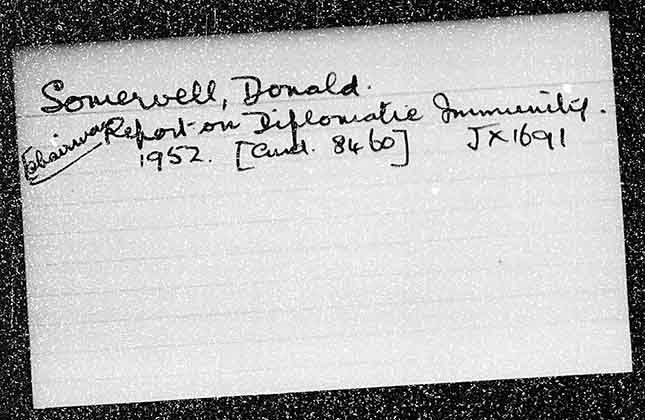 Somervell, Donald.
[Chairman Report on Diplomatic Immunity.
1952. [Cmd. 8460] JX1691